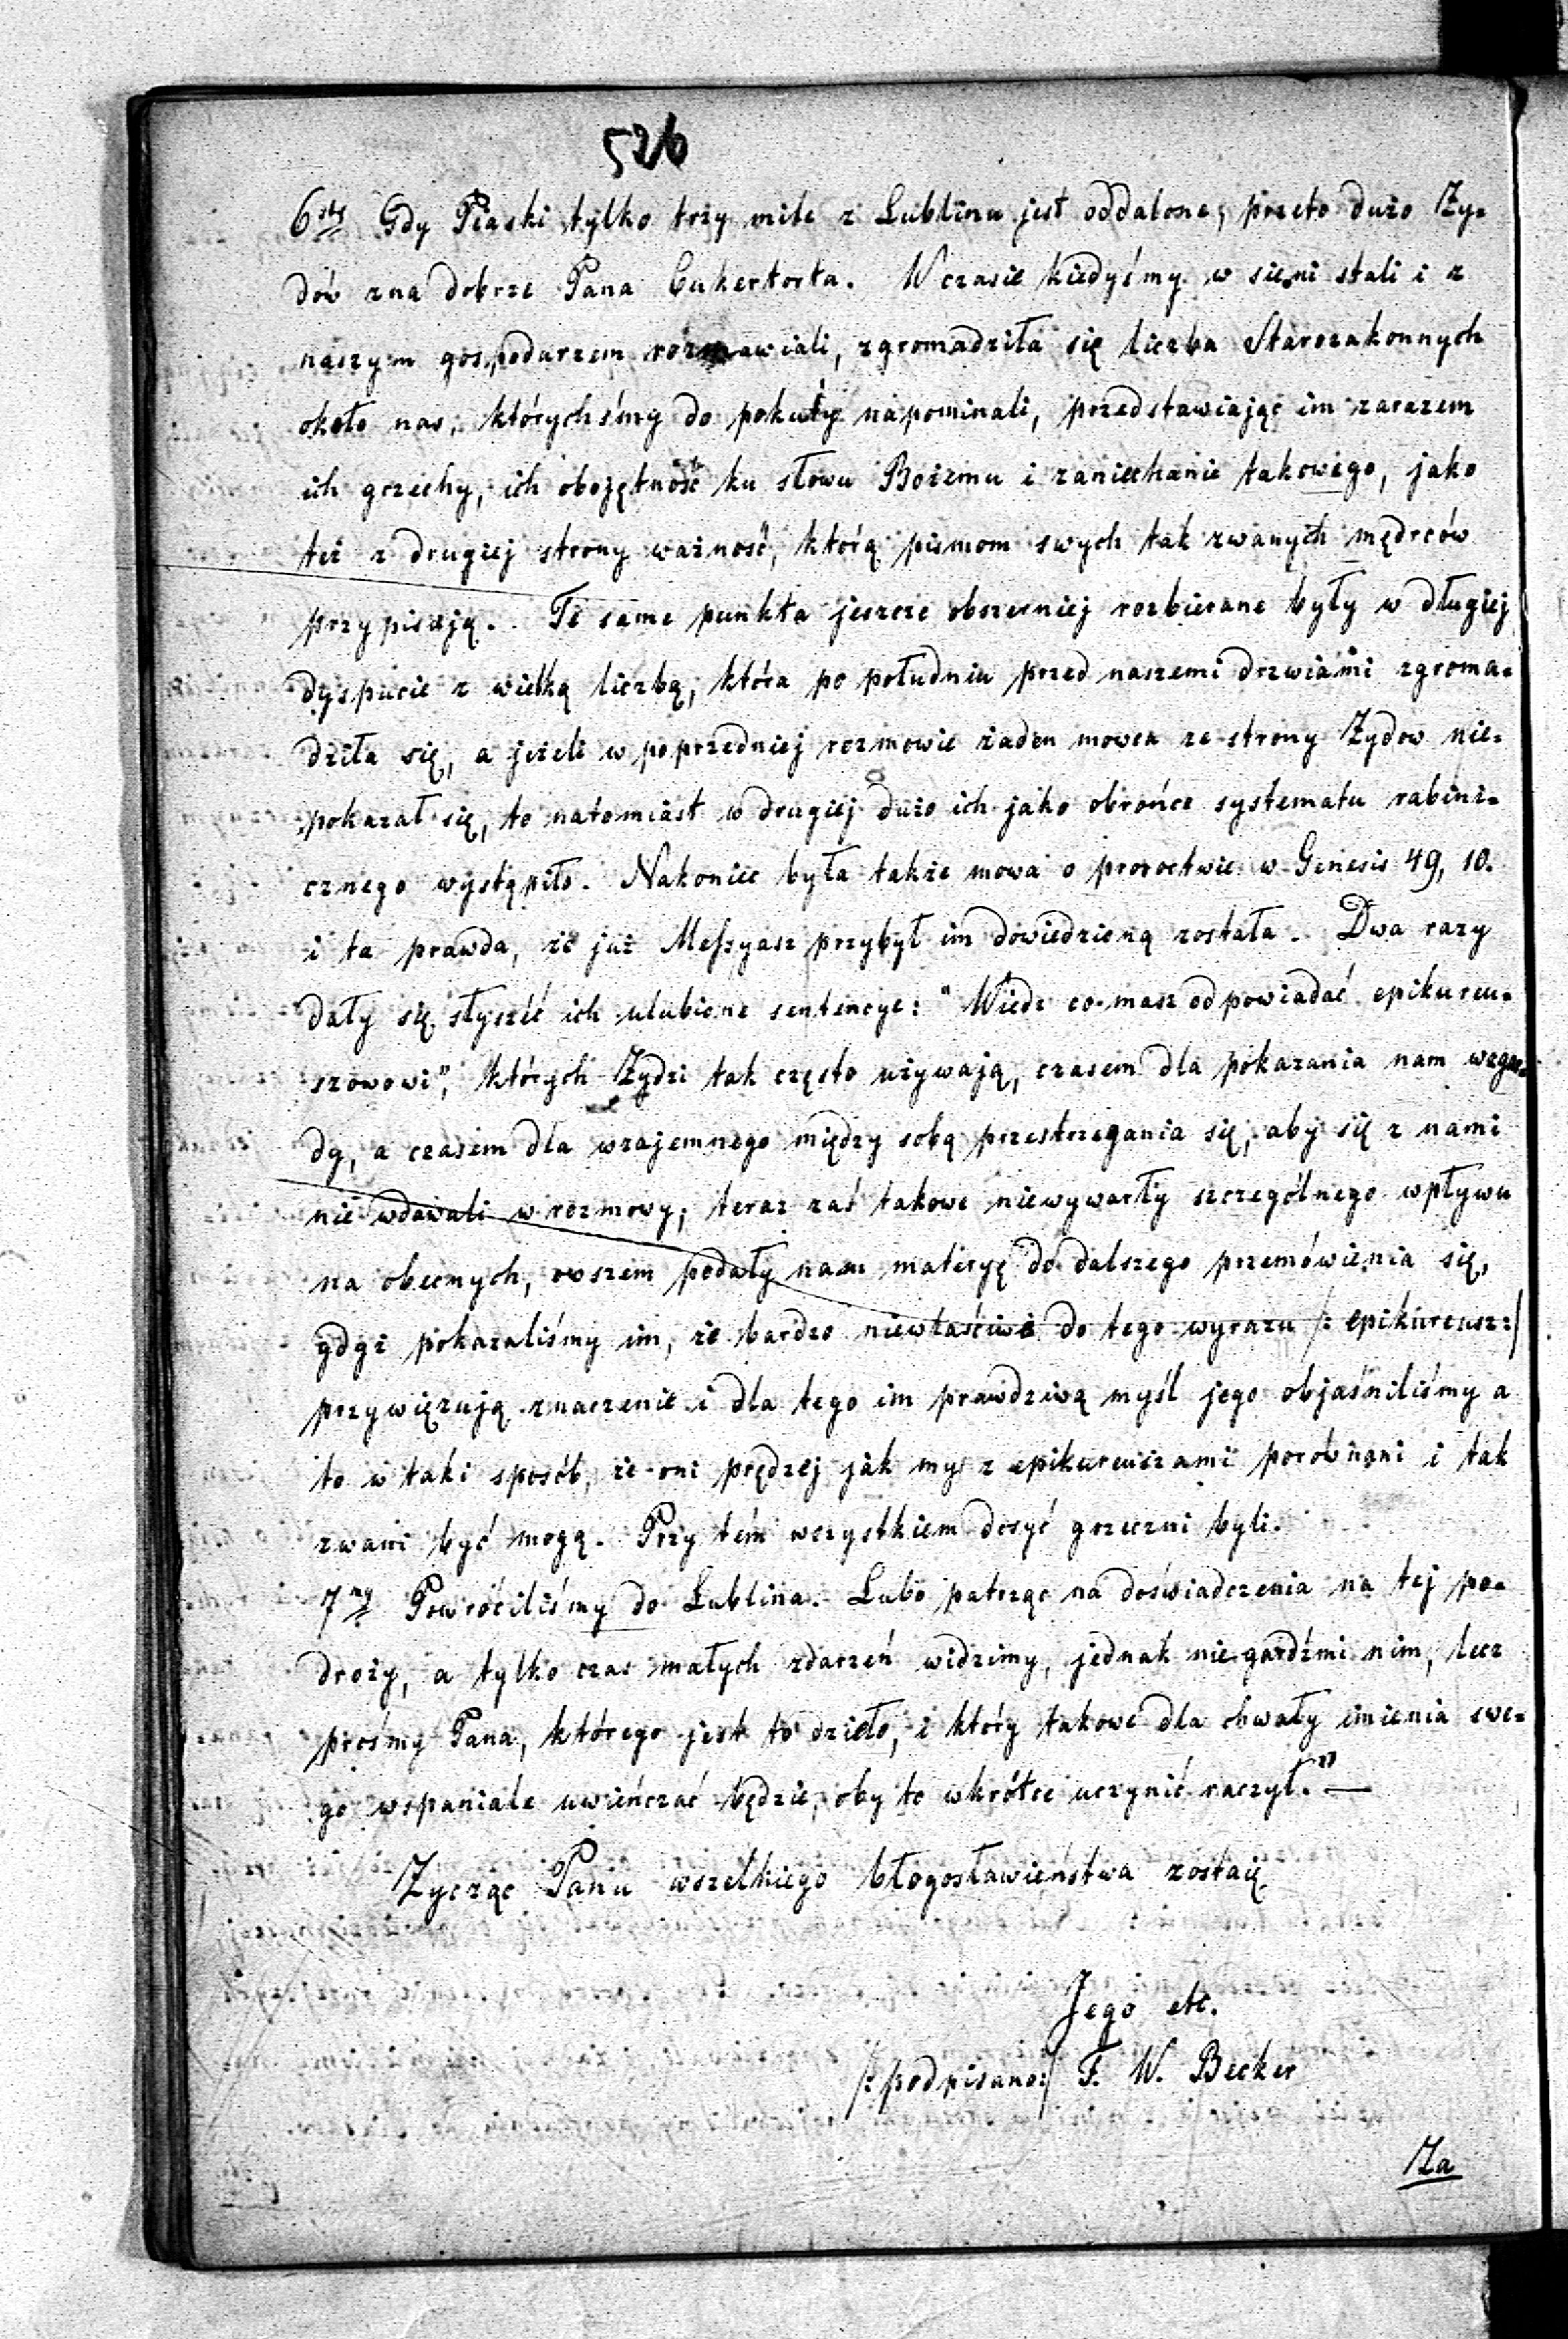 526
6sty Gdy Piaski tylko trzy mile z Lublina jest oddalone, przeto dużo Ży-
dów zna dobrze Pana Cukertorta. W czasie kiedyśmy w sieni stali i z
naszym gospodarzem rozmawiali, zgromadziła się liczba Starozakonnych
około nas, którychśmy do pokuty napominali, przedstawiając im zarazem
ich grzechy, ich obojętność ku słowu Bożemu i zaniechanie takowego, jako
też z drugiej strony ważność, którą pismom swych tak zwanych mędrców
przypisują. Te same punkta jeszcze obszerniej rozbierane były w długiej
dyspucie z wielką liczbą, która po południu przed naszemi drzwiami zgroma-
dziła się, a jeżeli w poprzedniej rozmowie żaden mowca ze strony Żydow nie-
pokazał się, to natomiast w drugiej dużo ich jako obrońce systematu rabini-
cznego wystąpiło. Nakoniec była także mowa o proroctwie w Genesis 49, 10.
i ta prawda, że już Meſsyasz przybył im dowiedzioną została. Dwa razy
dały się słyszéć ich ulubione sentencye: "Wiedz co masz odpowiadać epikureu-
szowowi", których Żydzi tak często używają, czasem dla pokazania nam wzgar-
dy, a czasem dla wzajemnego między sobą przestrzegania się, aby się z nami
nie wdawali w rozmowy; teraz zaś takowe niewywarły szczególnego wpływu
na obecnych, owszem podały nam materyę do dalszego przemówienia się,
gdyż pokazaliśmy im, że bardzo niewłaściwe do tego wyrazu /: epikureusz :/
przywięzują znaczenie i dla tego im prawdziwą myśl jego objaśniliśmy a
to w taki sposób, że oni prędzej jak my z epikureuszami porównani i tak
zwani być mogą. Przy tém wszystkiem dosyć grzeczni byli.
7my Powróciliśmy do Lublina. Lubo patrząc na doświadczenia na tej po-
droży, a tylko czas małych zdarzeń widzimy, jednak nie gardźmi nim, lecz
prośmy Pana, którego jest to dzieło, i który takowe dla chwały imienia swe-
go wspaniale uwieńczać będzie, oby to wkrótce uczynić raczył." —
Życząc Panu wszelkiego błogosławieństwa zostaię
Jego etc.
/: podpisano :/ F. W. Becker
Za